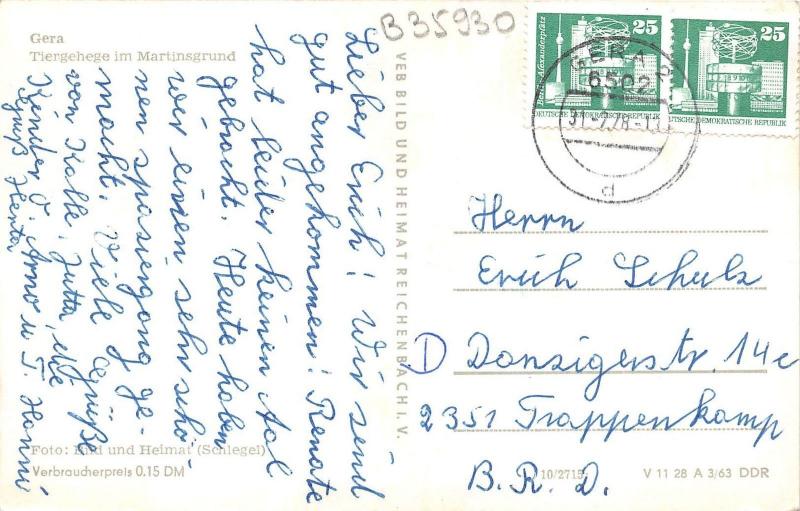 Gera
Tiergehege im Martinsgrund
B35930
Lieber Erich! Wir sind
gut angekommen! Renate
hat leider keinen Aal
gebracht. Heute haben
wir einen sehr schö-
nen spaziergang ge-
macht. Viele Grüße
von Kalle, Jutta, alle
Kinder O. Arno u T. Hanni
Gruß Herta
Foto: Bild und Heimat (Schlegel)
Verbraucherpreis 0.15 DM
VEB BILD UND HEIMAT REICHENBACH I. V.
25
25
Berlin-Alexanderplatz
DEUTSCHE DEMOKRATISCHE REPUBLIK
DEMOKRATISCHE REPUBLIK
GERA
6502
d
Herrn
Erich Schulz
D Danzigerstr. 14c
2351 Trappenkamp
B.R.D.
10/2715
V 11 28 A 3/63 DDR